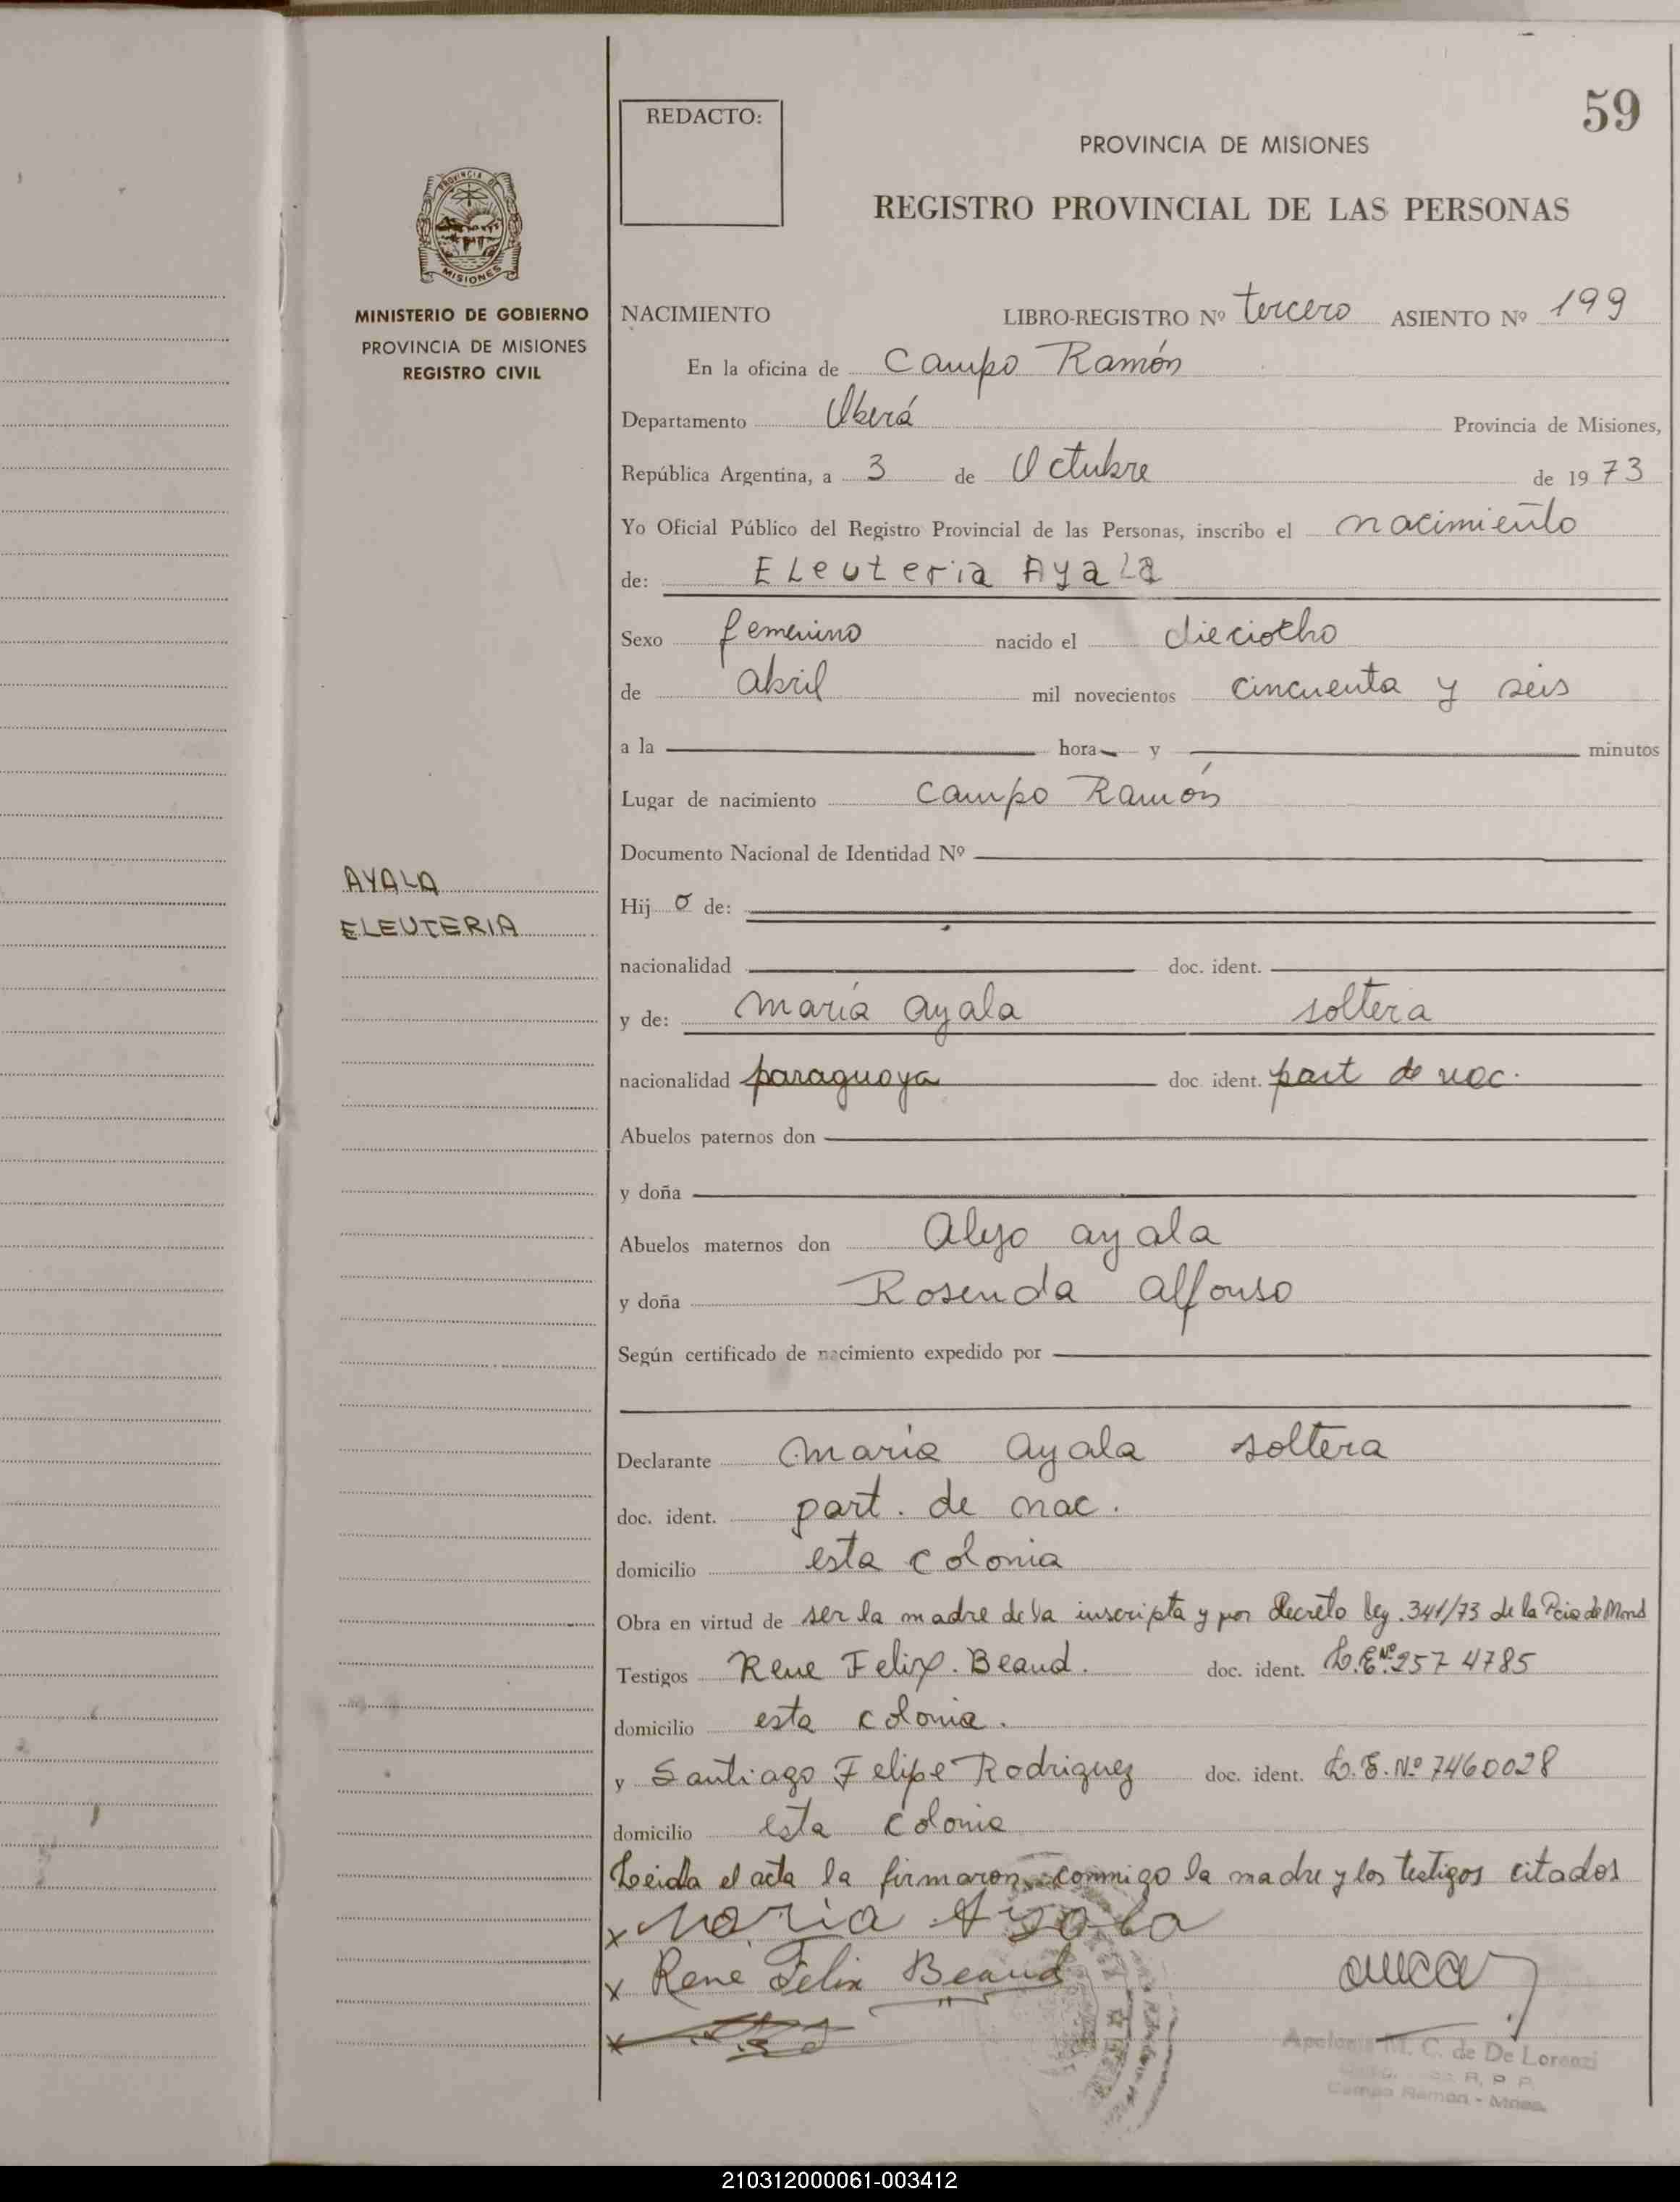 59
REDACTO:
PROVINCIA DE MISIONES
REGISTRO PROVINCIAL DE LAS PERSONAS
PROVINCIA DE
MISIONES
MINISTERIO DE GOBIERNO
PROVINCIA DE MISIONES
REGISTRO CIVIL
NACIMIENTO LIBRO-REGISTRO Nº tercero ASIENTO Nº 199
En la oficina de Campo Ramón
Departamento Oberá Provincia de Misiones,
República Argentina, a 3 de Octubre de 1973
Yo Oficial Público del Registro Provincial de las Personas, inscribo el nacimiento
de: Eleuteria Ayala
Sexo femenino nacido el dieciocho
de abril mil novecientos cincuenta y seis
a la hora y minutos
Lugar de nacimiento Campo Ramón
Documento Nacional de Identidad Nº
AYALA
ELEUTERIA
Hij o de:
nacionalidad doc. ident.
y de: maría ayala soltera
nacionalidad paraguaya doc. ident. part de nac.
Abuelos paternos don
y doña
Abuelos maternos don Alejo ayala
y doña Rosenda Alfonso
Según certificado de nacimiento expedido por
Declarante maria ayala soltera
doc. ident. part. de nac.
domicilio esta colonia
Obra en virtud de ser la madre de la inscripta y por decreto ley. 341/73 de la Pcia de
Testigos Rene Felix. Beaud. doc. ident. L.E.Nº.2574785
domicilio esta colonia.
y Santiago Felipe Rodriguez doc. ident. L.E.Nº 7460028
domicilio esta colonia
Leida el acta la firmaron conmigo la madre y los testigos citados
x Maria Ayala
x René Felix Beaud
x
M. C. de De Lorenzi
R. P. P.
Campo Ramón - Mnes.
210312000061-003412